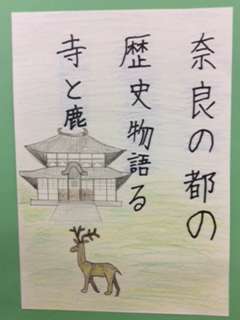 奈良の都の
歴史物語る
寺と鹿